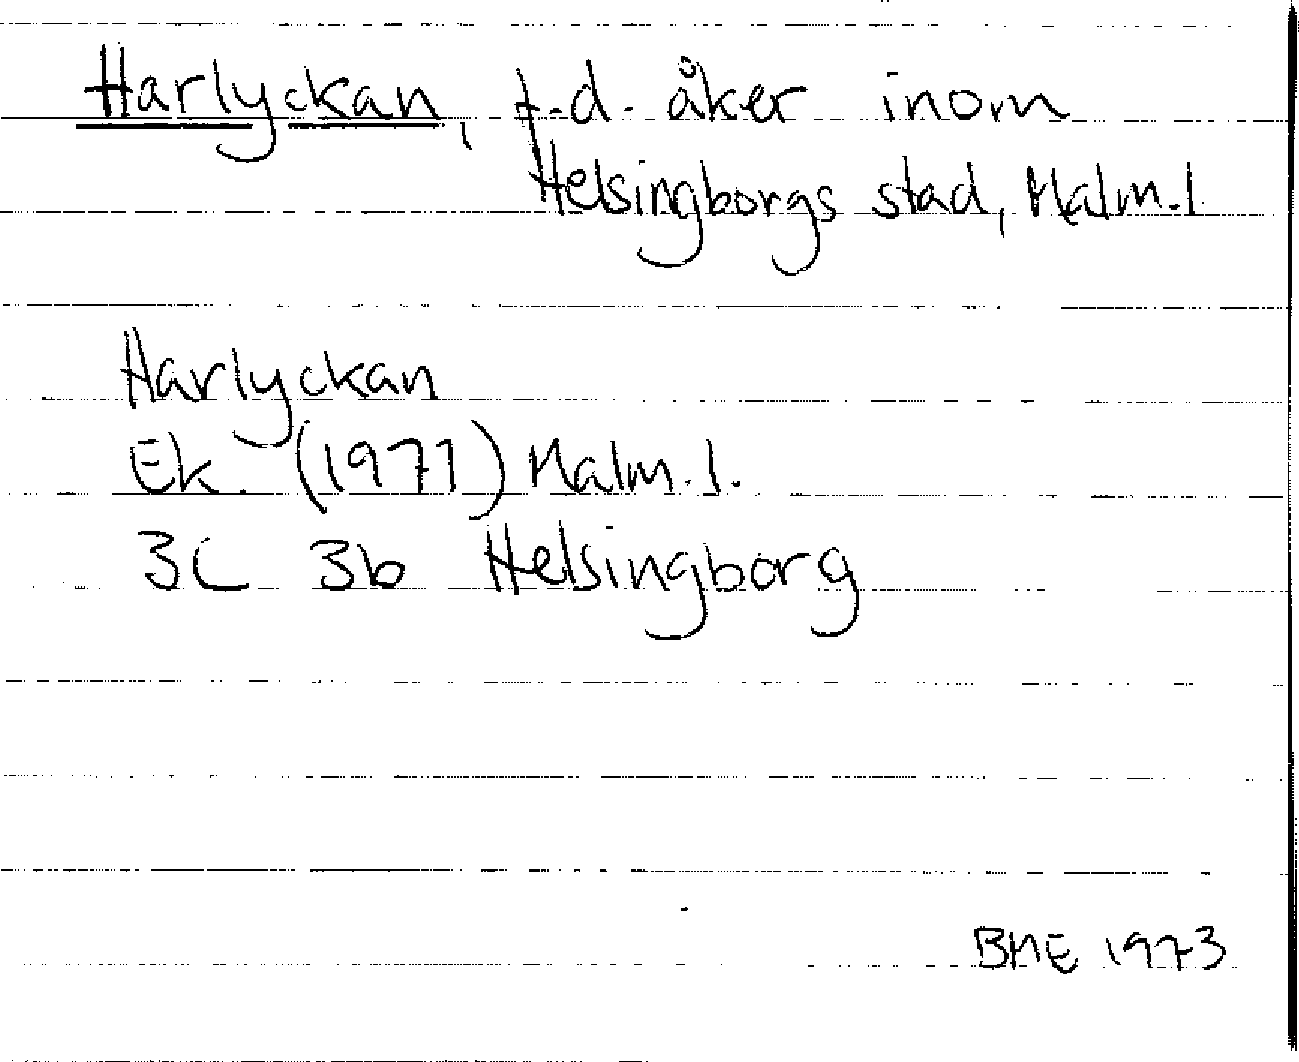 Harlyckan, f.d. åker inom
Helsingborgs stad, Malm.l
Harlyckan
Ek. (1971) Malm.l.
3C 3b Helsingborg
BME 1973